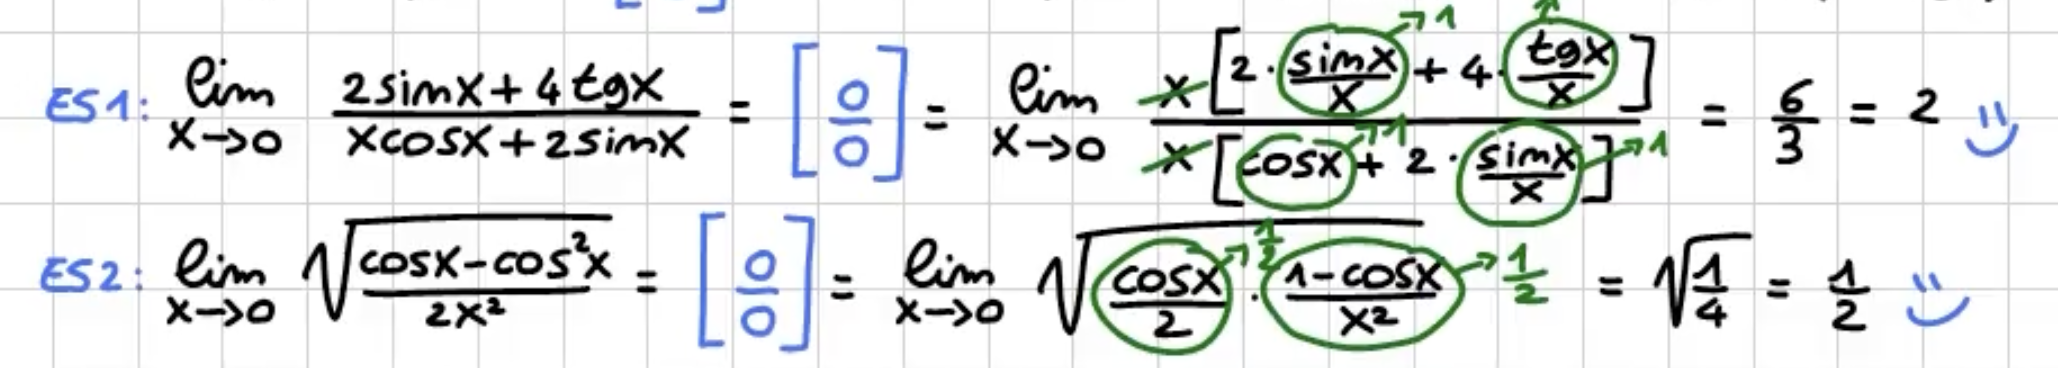 ES1: lim x→0 (2sinx + 4tgx)/(xcosx + 2sinx) = [0/0] = lim x→0 x[2·(sinx/x)→1 + 4·(tgx/x)↑]/x[cosx→1 + 2·(sinx/x)→1] = 6/3 = 2 ü
ES2: lim x→0 √((cosx-cos²x)/(2x²)) = [0/0] = lim x→0 √((cosx/2)→1/2 · ((1-cosx)/x²)→1/2) = √(1/4) = 1/2 ü